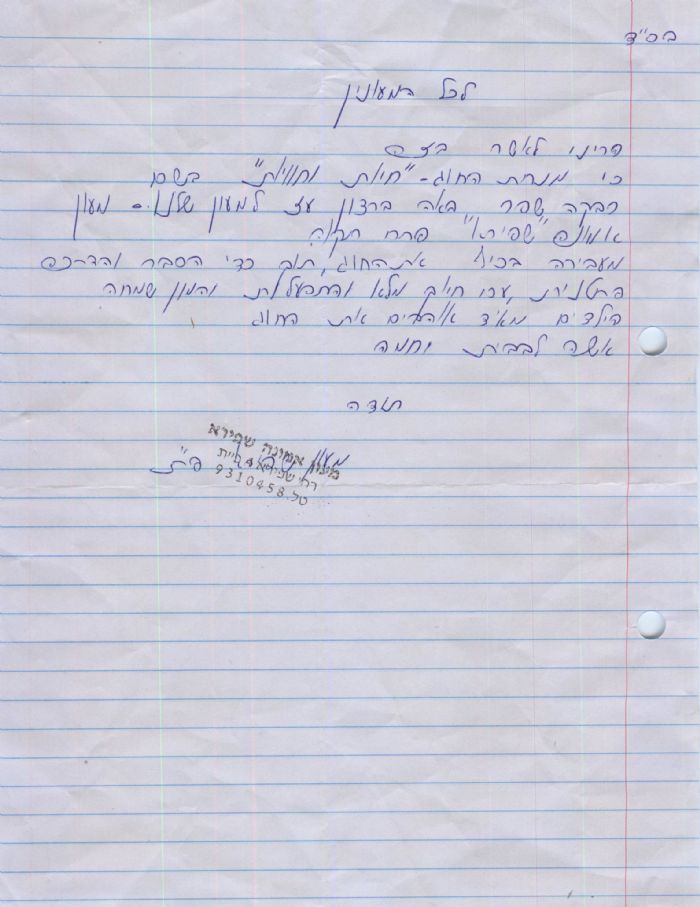 בס"ד
לכל המעונין
הריני לאשר בזה
כי מנחת החוג - "חיות וחוויות" בשם
רבקה שפר באה ברצון עז למעון שלנו - מעון
אמונה "שפירא" פתח תקוה
מעבירה בכיף את החוג, תוך כדי הסבר והדרכה
פרטנית, עם חיוך מלא והתפעלות והמון שמחה
הילדים מאד אוהבים את החוג
אשה לבבית וחמה
תודה
מעון אמונה שפירא
רח' שפירא
9310458.טל
פ"ת